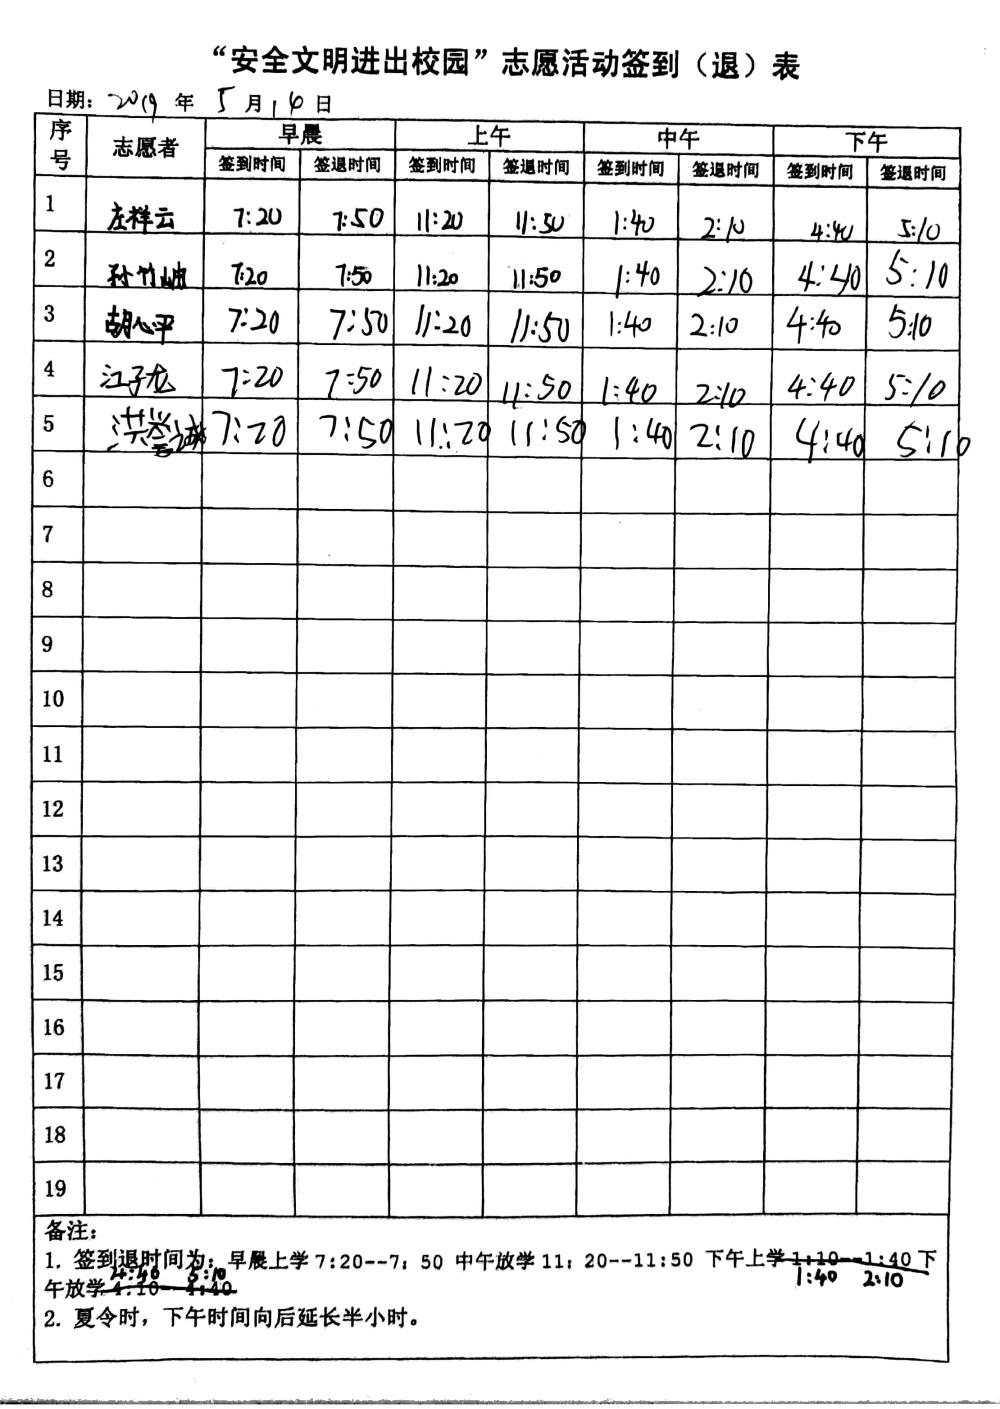 “安全文明进出校园”志愿活动签到（退）表
日期：2019 年 5 月 14 日
序号 志愿者 早晨 上午 中午 下午
签到时间 签退时间 签到时间 签退时间 签到时间 签退时间 签到时间 签退时间
1 左祥云 7:20 7:50 11:20 11:50 1:40 2:10 4:40 5:10
2 孙竹 7:20 7:50 11:20 11:50 1:40 2:10 4:40 5:10
3 胡心平 7:20 7:50 11:20 11:50 1:40 2:10 4:40 5:10
4 江子龙 7:20 7:50 11:20 11:50 1:40 2:10 4:40 5:10
5 洪 7:20 7:50 11:20 11:50 1:40 2:10 4:40 5:10
6
7
8
9
10
11
12
13
14
15
16
17
18
19
备注：
1. 签到退时间为：早晨上学 7:20--7：50 中午放学 11：20--11:50 下午上学 1:10--1:40 下
4:40 5:10 1:40 2:10
午放学 4:10--4:40
2. 夏令时，下午时间向后延长半小时。